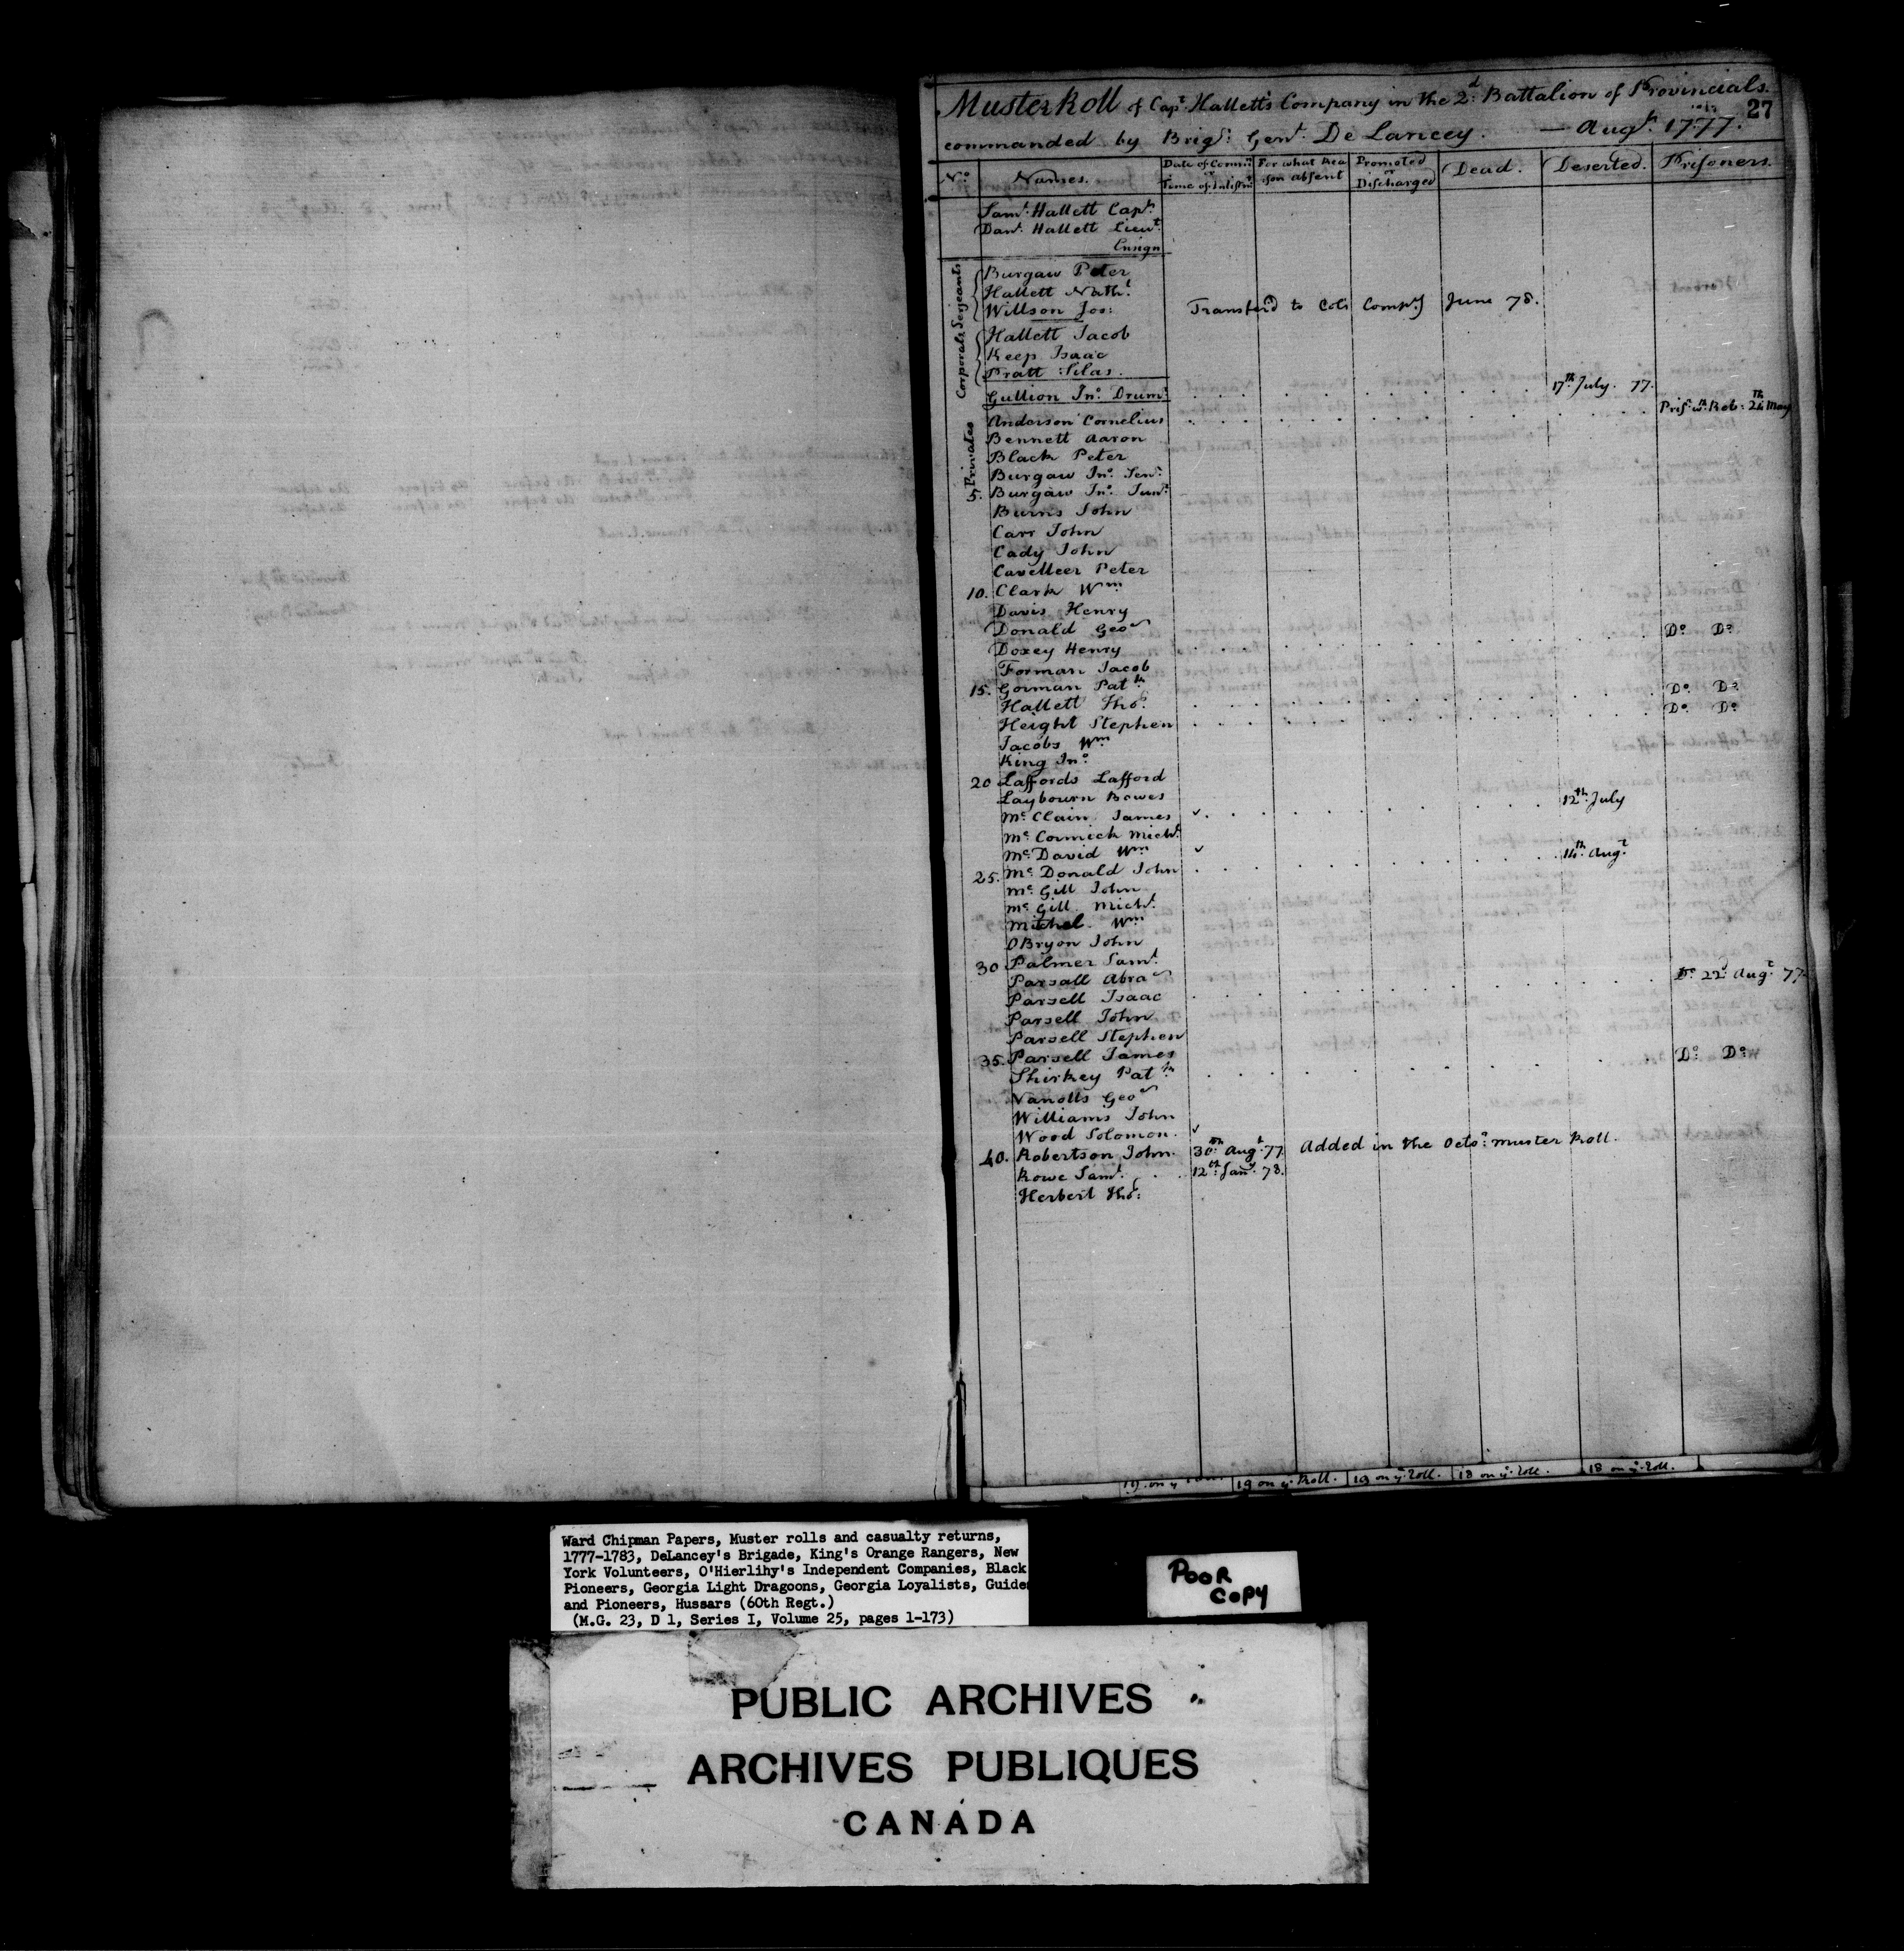 Muster Roll of Capt. Hallett's Company in the 2d. Battalion of Provincials. 27
commanded by Brigr. Genl. De Lancey. — Augt. 1777.
No. Names. Date of Commn. or Time of Inlistmt. For what Reason absent Promoted or Discharged Dead. Deserted. Prisoners.
Saml. Hallett Capt.
Danl. Hallett Lieut.
Ensign
Serjeants
Burgaw Peter
Hallett Nathl.
Willson Jos: Transferd to Cols Compy June 78.
Corporals
Hallett Jacob
Keep Isaac
Pratt Silas.
Gullion Jno. Drumr. 17th. July. 77.
Privates
Anderson Cornelius Prisr. wth. Reb: 24th May
Bennett Aaron
Black Peter
Burgaw Jno. Senr.
5. Burgaw Jno. Junr.
Burns John
Carr John
Cady John
Cavelleer Peter
10. Clark Wm
Davis Henry
Donald Geo
Doxey Henry Do. Do.
Forman Jacob
15. Gorman Patk.
Hallett Thos. Do. Do.
Height Stephen Do. Do.
Jacobs Wm
King Jno.
20 Laffords Lafford
Laybourn Bowes
McClain James 12th. July
McCormick Michl.
McDavid Wm
25. McDonald John 14th. Augt.
McGill John
McGill Michl.
Mitchel Wm
OBryon John
30 Palmer Saml.
Parsall Abra
Parsell Isaac Do. 22d. Augt. 77.
Parsell John
Parsell Stephen
35. Parsell James
Shirkey Patk. Do. Do.
Vanolts Geo
Williams John
Wood Solomon.
40. Robertson John. 30th. Augt. 77 Added in the Octo: muster Roll.
Rowe Saml. 12th. Jany. 78.
Herbert Thos:
19 on ye Roll. 19 on ye Roll. 18 on ye Roll. 18 on ye Roll.
Ward Chipman Papers, Muster rolls and casualty returns,
1777-1783, DeLancey's Brigade, King's Orange Rangers, New
York Volunteers, O'Hierlihy's Independent Companies, Black
Pioneers, Georgia Light Dragoons, Georgia Loyalists, Guide
and Pioneers, Hussars (60th Regt.)
(M.G. 23, D 1, Series I, Volume 25, pages 1-173)
POOR
COPY
PUBLIC ARCHIVES
ARCHIVES PUBLIQUES
CANADA